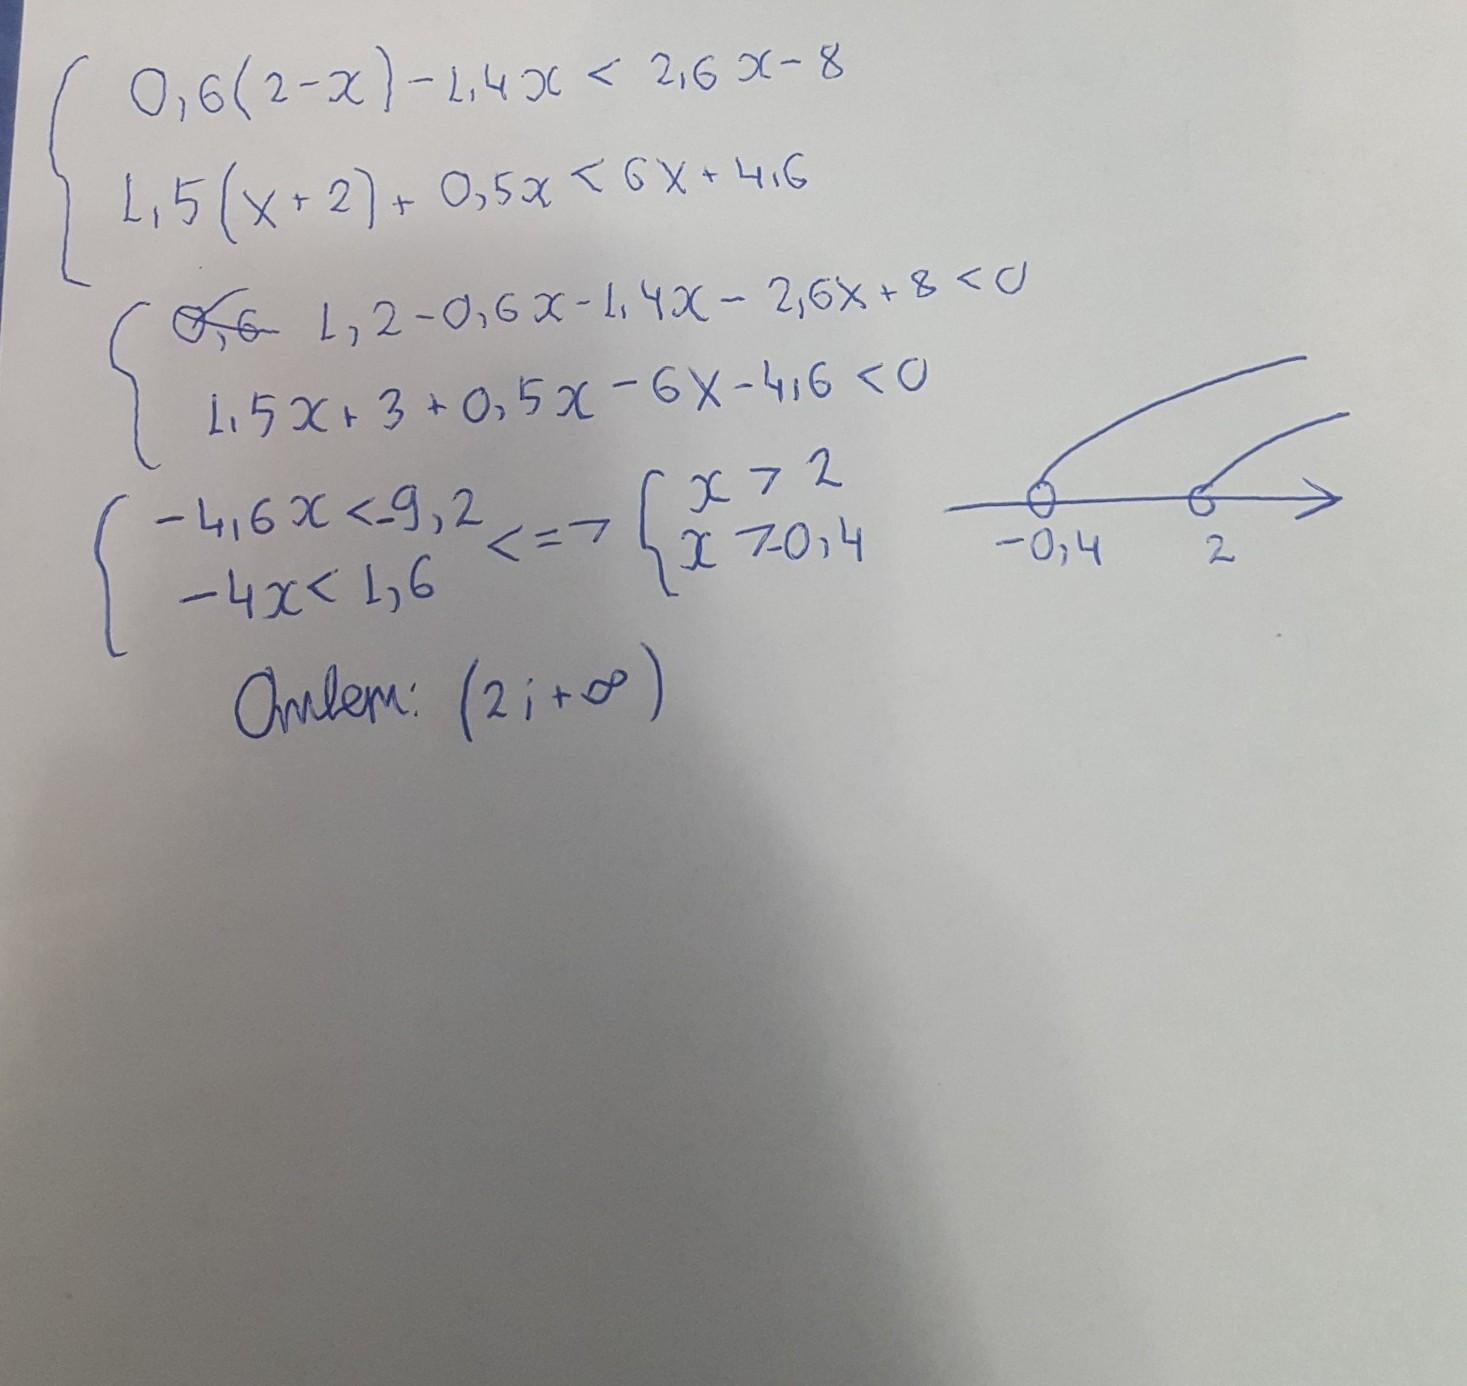 0,6(2-x)-1,4x < 2,6x-8
1,5(x+2)+0,5x < 6x+4,6
0,6 1,2-0,6x-1,4x-2,6x+8<0
1,5x+3+0,5x-6x-4,6<0
-4,6x<-9,2 <=> x>2
-4x<1,6 x>-0,4
-0,4 2
Ответ: (2;+∞)